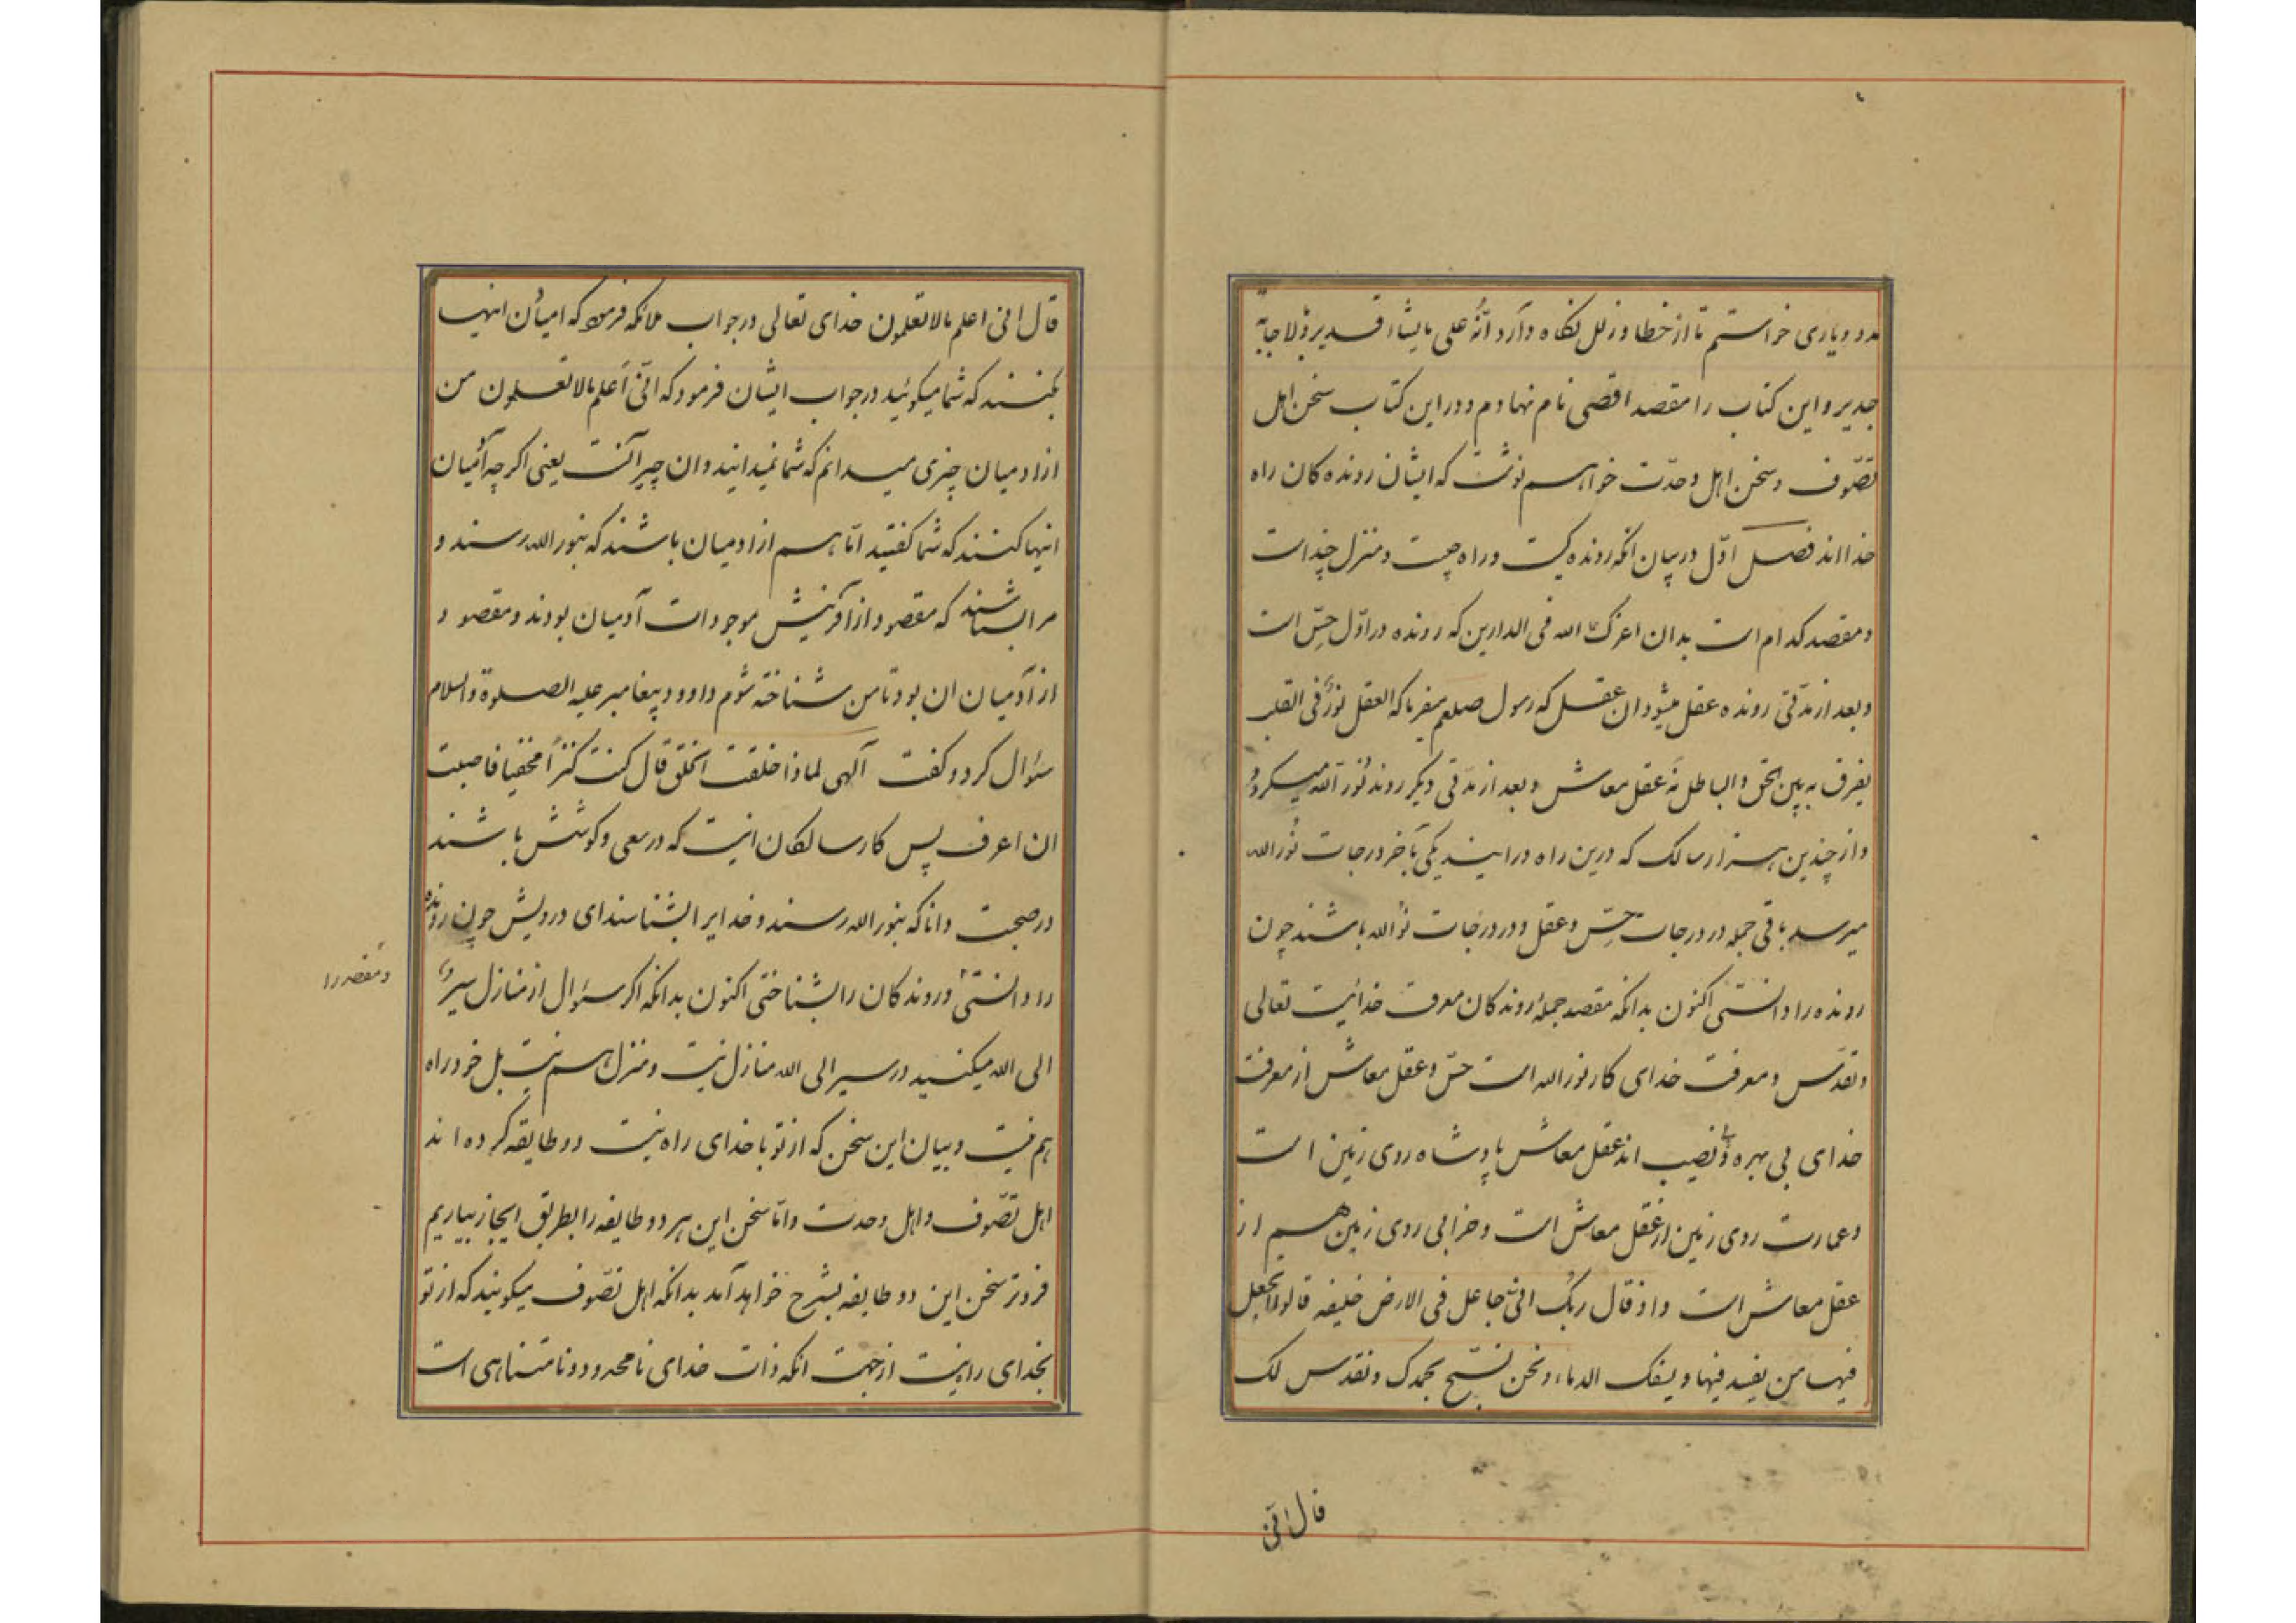 مدد و یاری خواستم تا از خطا و زلل نگاه دارد انّه علی مایشاء قدیر و بالاجابة
جدیر و این کتاب را مقصد اقصی نام نهادم و در این کتاب سخن اهل
تصّوف و سخن اهل وحدّت خواهم نوشت که ایشان رونده کان راه
خدااند فصل اوّل در بیان انکه رونده کیست و راه چیست و منزل چند است
و مقصد کدام است بدان اعزک الله فی الدارین که رونده در اوّل حسّ است
و بعد از مدّتی رونده عقل میشود ان عقل که رسول صلعم میفرماید که العقل نورٌ فی القلب
یفرق به بین الحق و الباطل نه عقل معاش و بعد از مدّتی دیکر رونده نور الله میکردد
و از چندین هزار سالک که درین راه درایند یکی بآخر درجات نور الله
میرسد باقی جمله در درجات حسّ و عقل و در درجات نور الله باشند چون
رونده را دانستی اکنون بدانکه مقصد جملهٔ روندکان معرفت خدائیت تعالی
و تقدّس و معرفت خدای کار نور الله است حسّ و عقل معاش از معرفت
خدای بی بهره و بی نصیب اند عقل معاش پادشاه روی زمین است
و عمارت روی زمین از عقل معاش است و خرابی روی زمین هم از
عقل معاش است و اذ قال ربّک انّی جاعل فی الارض خلیفه قالوا اتجعل
فیها من یفسد فیها و یسفک الدماء و نحن نسبّح بحمدک و نقدس لک
قال انّی
قال انی اعلم مالاتعلمون خدای تعالی در جواب ملائکه فرمود که ادمیان اینها
بکنند که شما میکوئید در جواب ایشان فرمود که انّی اَعلم مالاتعلمون من
از ادمیان چیزی میدانم که شما نمیدانید و ان چیز آنست یعنی اکر چه آدمیان
اینها کنند که شما کفتید امّا هم از ادمیان باشند که بنور الله رسند و
مرا بشناسند که مقصود از آفرینش موجودات آدمیان بودند و مقصود
از آدمیان ان بود تا من شناخته شوم داوود پیغامبر علیه الصلوة و السلام
سؤال کرد و کفت آلهی لماذا خلقت الخلق قال کنت کنزاً مخفیا فاحببت
ان اعرف پس کار سالکان انیت که در سعی و کوشش باشند
در صحبت دانا که بنور الله رسند و خدایرا بشناسند ای درویش چون رونده
را دانستی و روندکان را بشناختی اکنون بدانکه اکر سؤال از منازل سیر
و مقصد را
الی الله میکنید در سیر الی الله منازل نیت و منزل هم نیت بل خود راه
هم نیت و بیان این سخن که از تو با خدای راه نیت دو طایفه کرده اند
اهل تصّوف و اهل وحدت و امّا سخن این هر دو طایفه را بطریق ایجاز بیاریم
فروتر سخن این دو طایفه بشرح خواهد آمد بدانکه اهل تصّوف میکویند که از تو
بخدای راه نیت از جهت انکه ذات خدای نامحدود و نامتناهی است